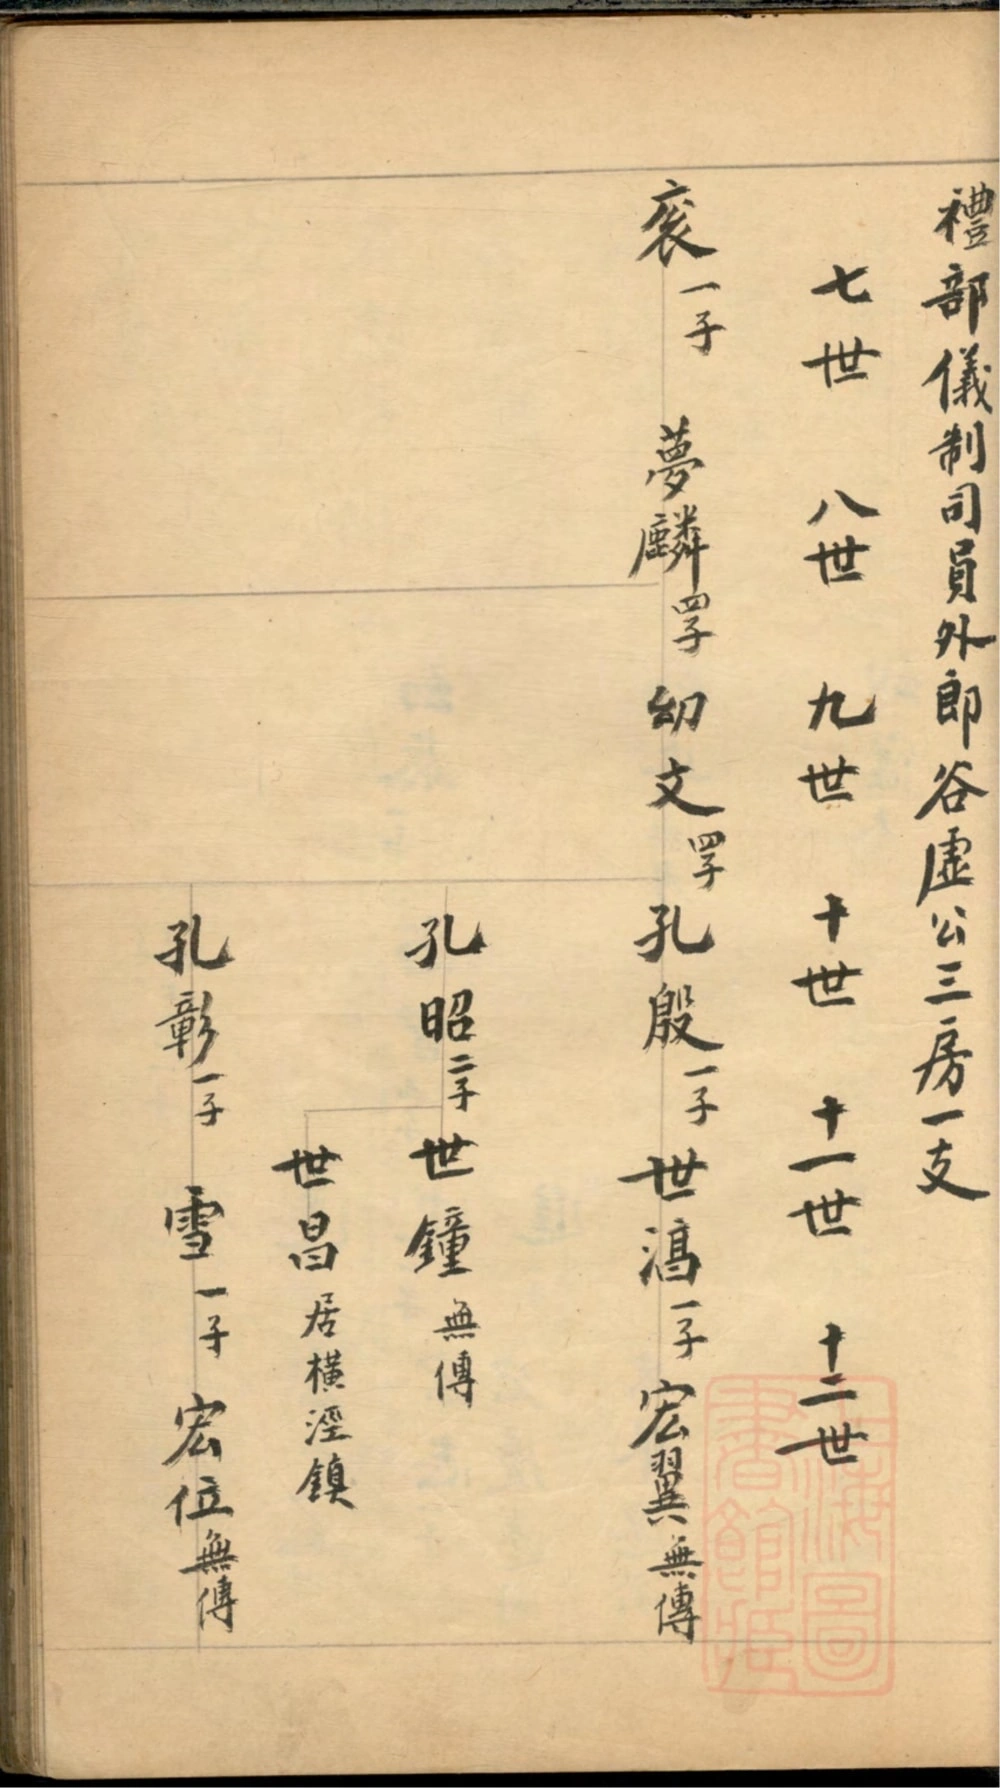 禮部儀制司員外郎谷虛公三房一支
七世 八世 九世 十世 十一世 十二世
袞一子 夢麟四子 幼文四子 孔殷一子 世滈一子 宏翼無傳
孔昭二子 世鐘無傳
世昌居橫涇鎮
孔彰一子 雪一子 宏位無傳
上海圖
書館藏